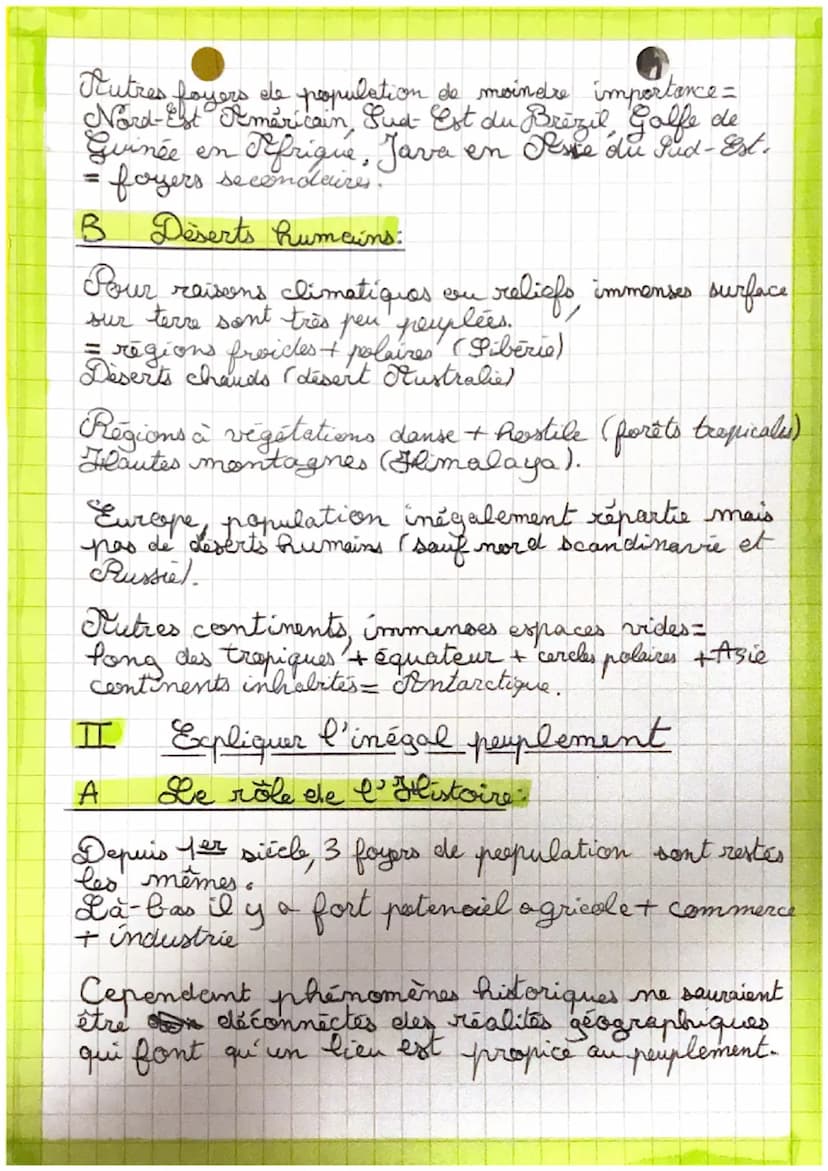 Autres foyers de population de moindre importance=
Nord-Est Américain, Sud-Est du Brézil, Golfe de
Guinée en Afrique, Java en Asie du Sud-Est.
= foyers secondaires.
B Déserts humains:
Pour raisons climatiques ou reliefs, immenses surface
sur terre sont très peu peuplées.
= régions froides + polaires (Sibérie)
Déserts chauds (désert Australie)
Régions à végétations danse + hostile (forêts tropicales)
Hautes montagnes (Himalaya).
Europe, population inégalement répartie mais
pas de déserts humains (sauf nord scandinavie et
Russie).
Autres continents, immenses espaces vides=
long des tropiques + équateur + cercles polaires + Asie
continents inhabités= Antarctique.
II Expliquer l'inégal peuplement
A Le rôle de l'Histoire:
Depuis 1er siècle, 3 foyers de population sont restés
les mêmes.
Là-bas il y a fort potenciel agricole + commerce
+ industrie
Cependant phénomènes historiques ne sauraient
être déconnectés des réalités géographiques
qui font qu'un lieu est propice au peuplement.